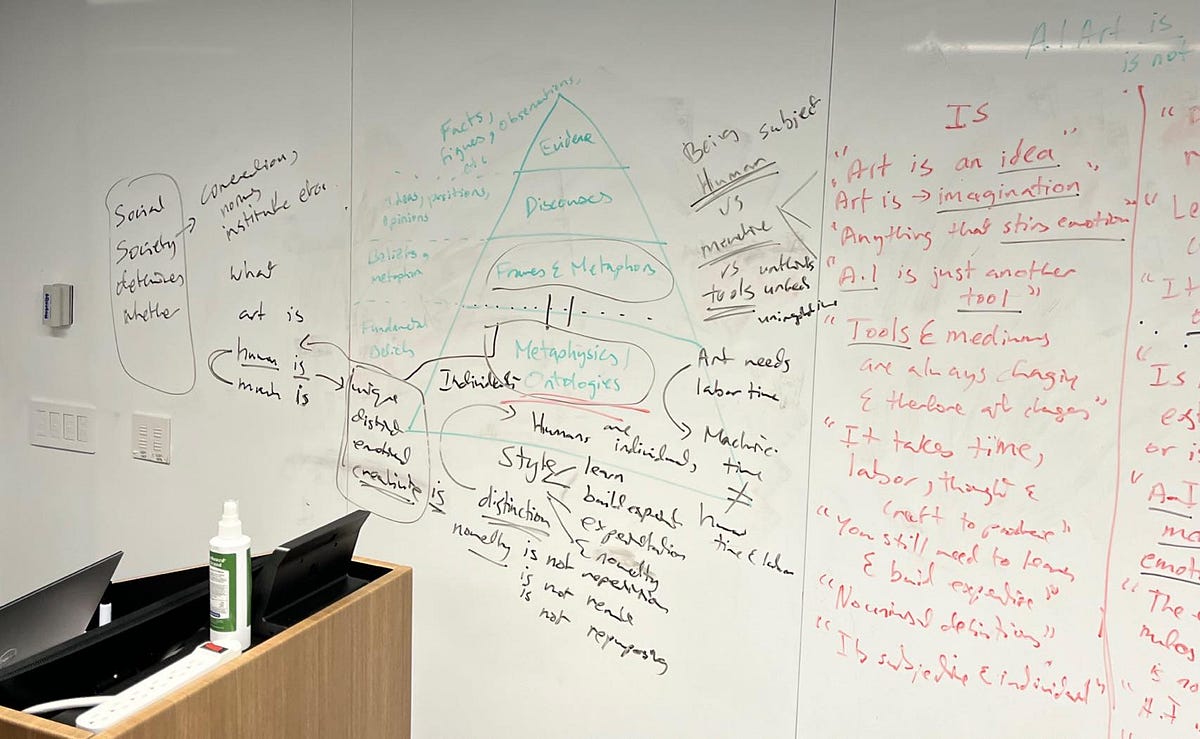 Social
Society
determines
whether
convention,
norms
institute etc.
what
art is
human is
much is
unique
distinct
emotional
creativity is
Facts,
figures, observations,
etc
ideas, positions,
opinions
Beliefs &
metaphors
Fundamental
Beliefs
Evidence
Discourses
Frames & Metaphors
Metaphysics /
Ontologies
Individuals
Humans are
individual,
Style
learn
build expert
expectation
& novelty
distinction
novelty is not repetition
is not remake
is not repurposing
Being subject
Human
vs
machine
vs
tools
Art needs
labor time
Machine
time
≠
human
time & labor
A.I Art is
is not
IS
"Art is an idea"
"Art is → imagination"
"Anything that stirs emotion"
"A.I is just another
tool"
"Tools & mediums
are always changing
& therefore art changes"
"It takes time,
labor, thought &
craft to produce"
"You still need to learn
& build expertise"
"No universal definitions"
"Its subjective & individual"
"It
"Is
or
"A.I
"The
makes
is no
A.I